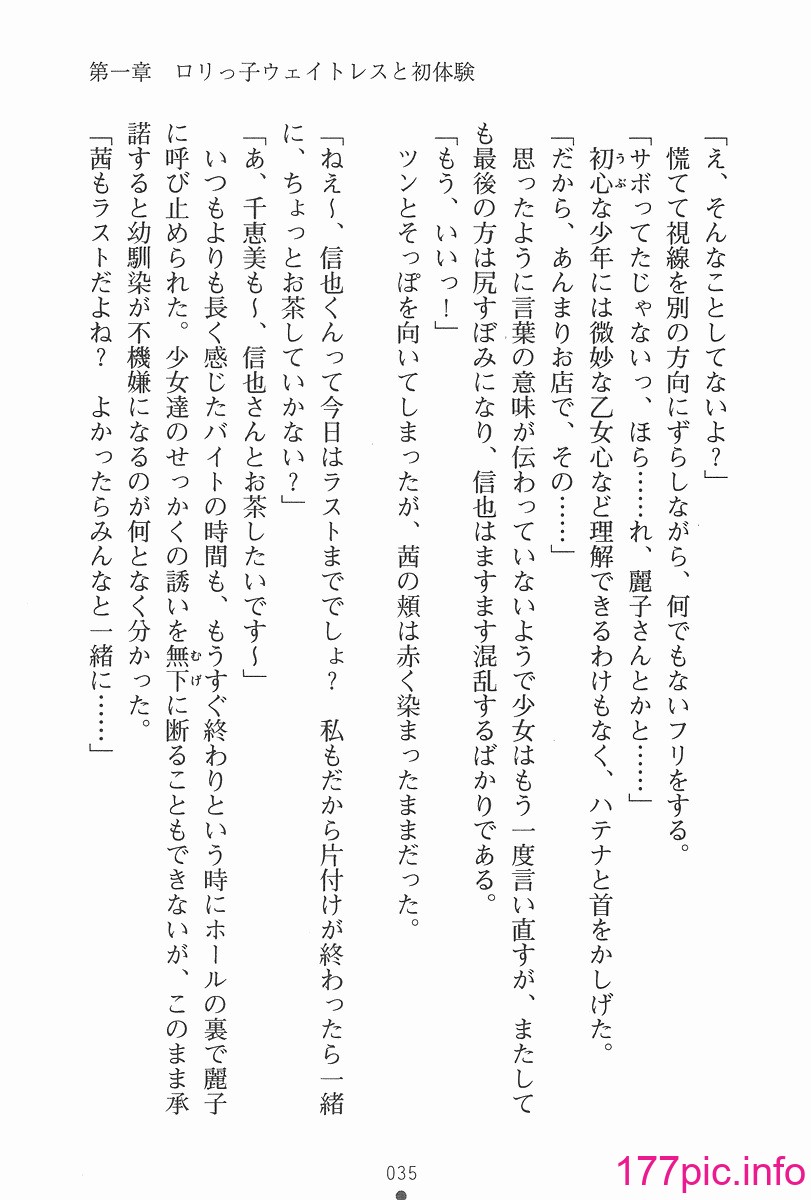 第一章　ロリっ子ウェイトレスと初体験
「え、そんなことしてないよ？」
　慌てて視線を別の方向にずらしながら、何でもないフリをする。
「サボってたじゃないっ、ほら……れ、麗子さんとかと……」
　初心な少年には微妙な乙女心など理解できるわけもなく、ハテナと首をかしげた。
「だから、あんまりお店で、その……」
　思ったように言葉の意味が伝わっていないようで少女はもう一度言い直すが、またして
も最後の方は尻すぼみになり、信也はますます混乱するばかりである。
「もう、いいっ！」
　ツンとそっぽを向いてしまったが、茜の頬は赤く染まったままだった。
「ねえ～、信也くんって今日はラストまででしょ？　私もだから片付けが終わったら一緒
に、ちょっとお茶していかない？」
「あ、千恵美も～、信也さんとお茶したいです～」
　いつもよりも長く感じたバイトの時間も、もうすぐ終わりという時にホールの裏で麗子
に呼び止められた。少女達のせっかくの誘いを無下に断ることもできないが、このまま承
諾すると幼馴染が不機嫌になるのが何となく分かった。
「茜もラストだよね？　よかったらみんなと一緒に……」
うぶ
むげ
035
177pic.info